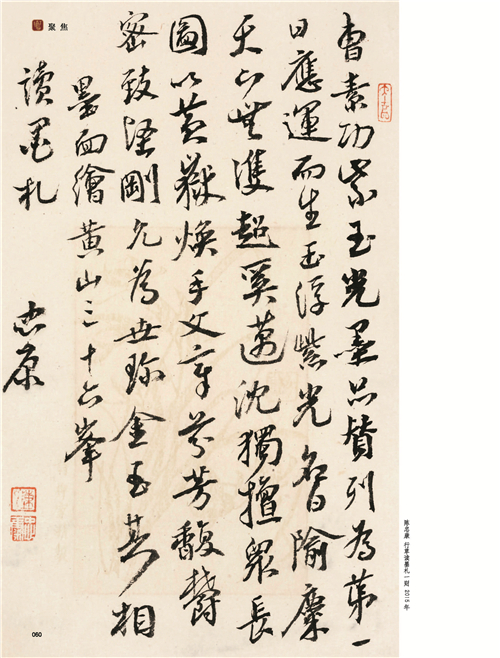 聚焦
曹素功紫玉光墨品贊列為第一
日應運而生玉浮紫光名曰隃糜
天下無雙超奚邁沈獨擅眾長
圖以黃嶽煥乎文章芬芳馥鬱
密致堅剛允為世珍金玉其相
墨面繪黃山三十六峯
讀墨札
忠康
陈忠康 行草读墨札一则 2015年
060